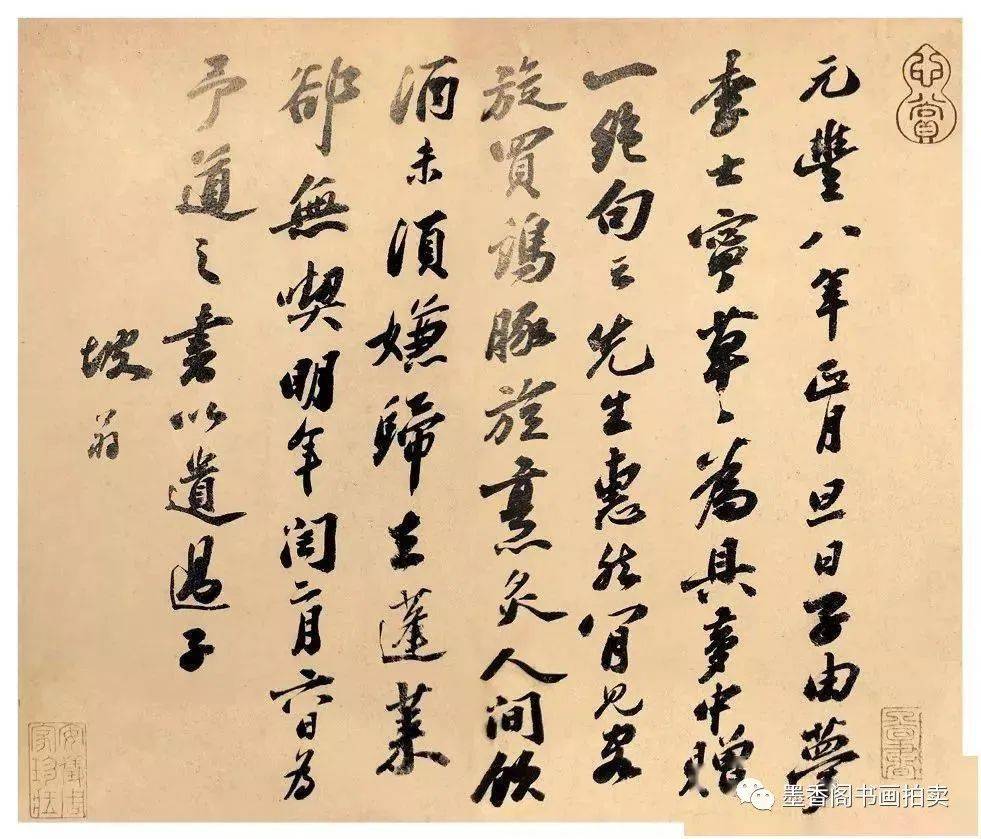 元豐八年正月旦日子由夢
李士寧草〻為具夢中贈
一絕句云先生惠然肯見客
旋買鷄豚旋烹炙人間飲
酒未須嫌歸去蓬萊
卻無喫明年閏二月六日為
予道之書以遺過子
坡翁
心賞
安儀周家珍藏
墨香阁书画拍卖